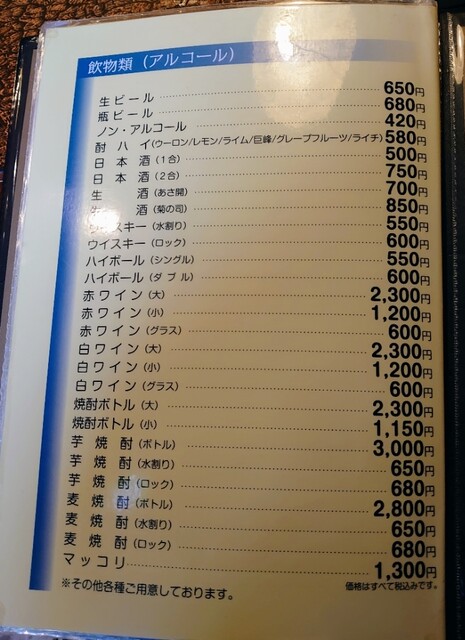 飲物類（アルコール）
生ビール 650円
瓶ビール 680円
ノン・アルコール 420円
酎ハイ（ウーロン/レモン/ライム/巨峰/グレープフルーツ/ライチ） 580円
日本酒（1合） 500円
日本酒（2合） 750円
生酒（あさ開） 700円
酒（菊の司） 850円
ウイスキー（水割り） 550円
ウイスキー（ロック） 600円
ハイボール（シングル） 550円
ハイボール（ダブル） 600円
赤ワイン（大） 2,300円
赤ワイン（小） 1,200円
赤ワイン（グラス） 600円
白ワイン（大） 2,300円
白ワイン（小） 1,200円
白ワイン（グラス） 600円
焼酎ボトル（大） 2,300円
焼酎ボトル（小） 1,150円
芋焼酎（ボトル） 3,000円
芋焼酎（水割り） 650円
芋焼酎（ロック） 680円
麦焼酎（ボトル） 2,800円
麦焼酎（水割り） 650円
麦焼酎（ロック） 680円
マッコリ 1,300円
※その他各種ご用意しております。
価格はすべて税込みです。